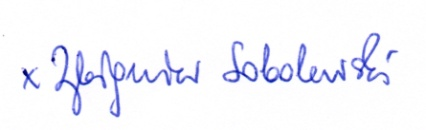 x Zbigniew Sobolewski